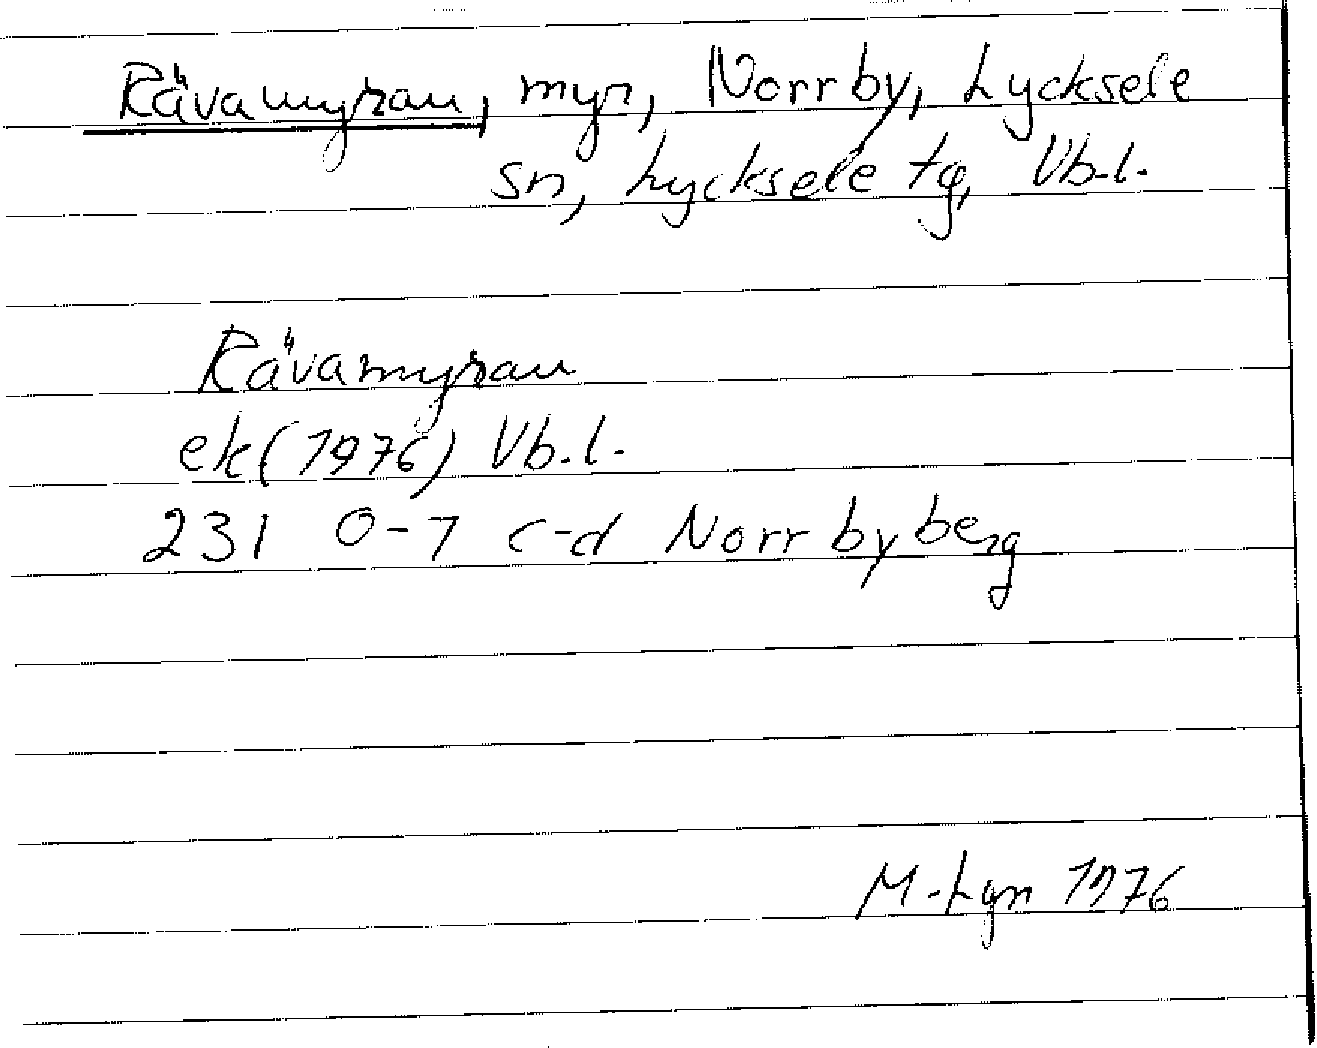 Rävamyran, myr, Norrby, Lycksele
sn, Lycksele tg, Vb.l.
Rävamyran
ek (1976) Vb.l.
231 0-7 c-d Norrbyberg
M-Lgn 1976